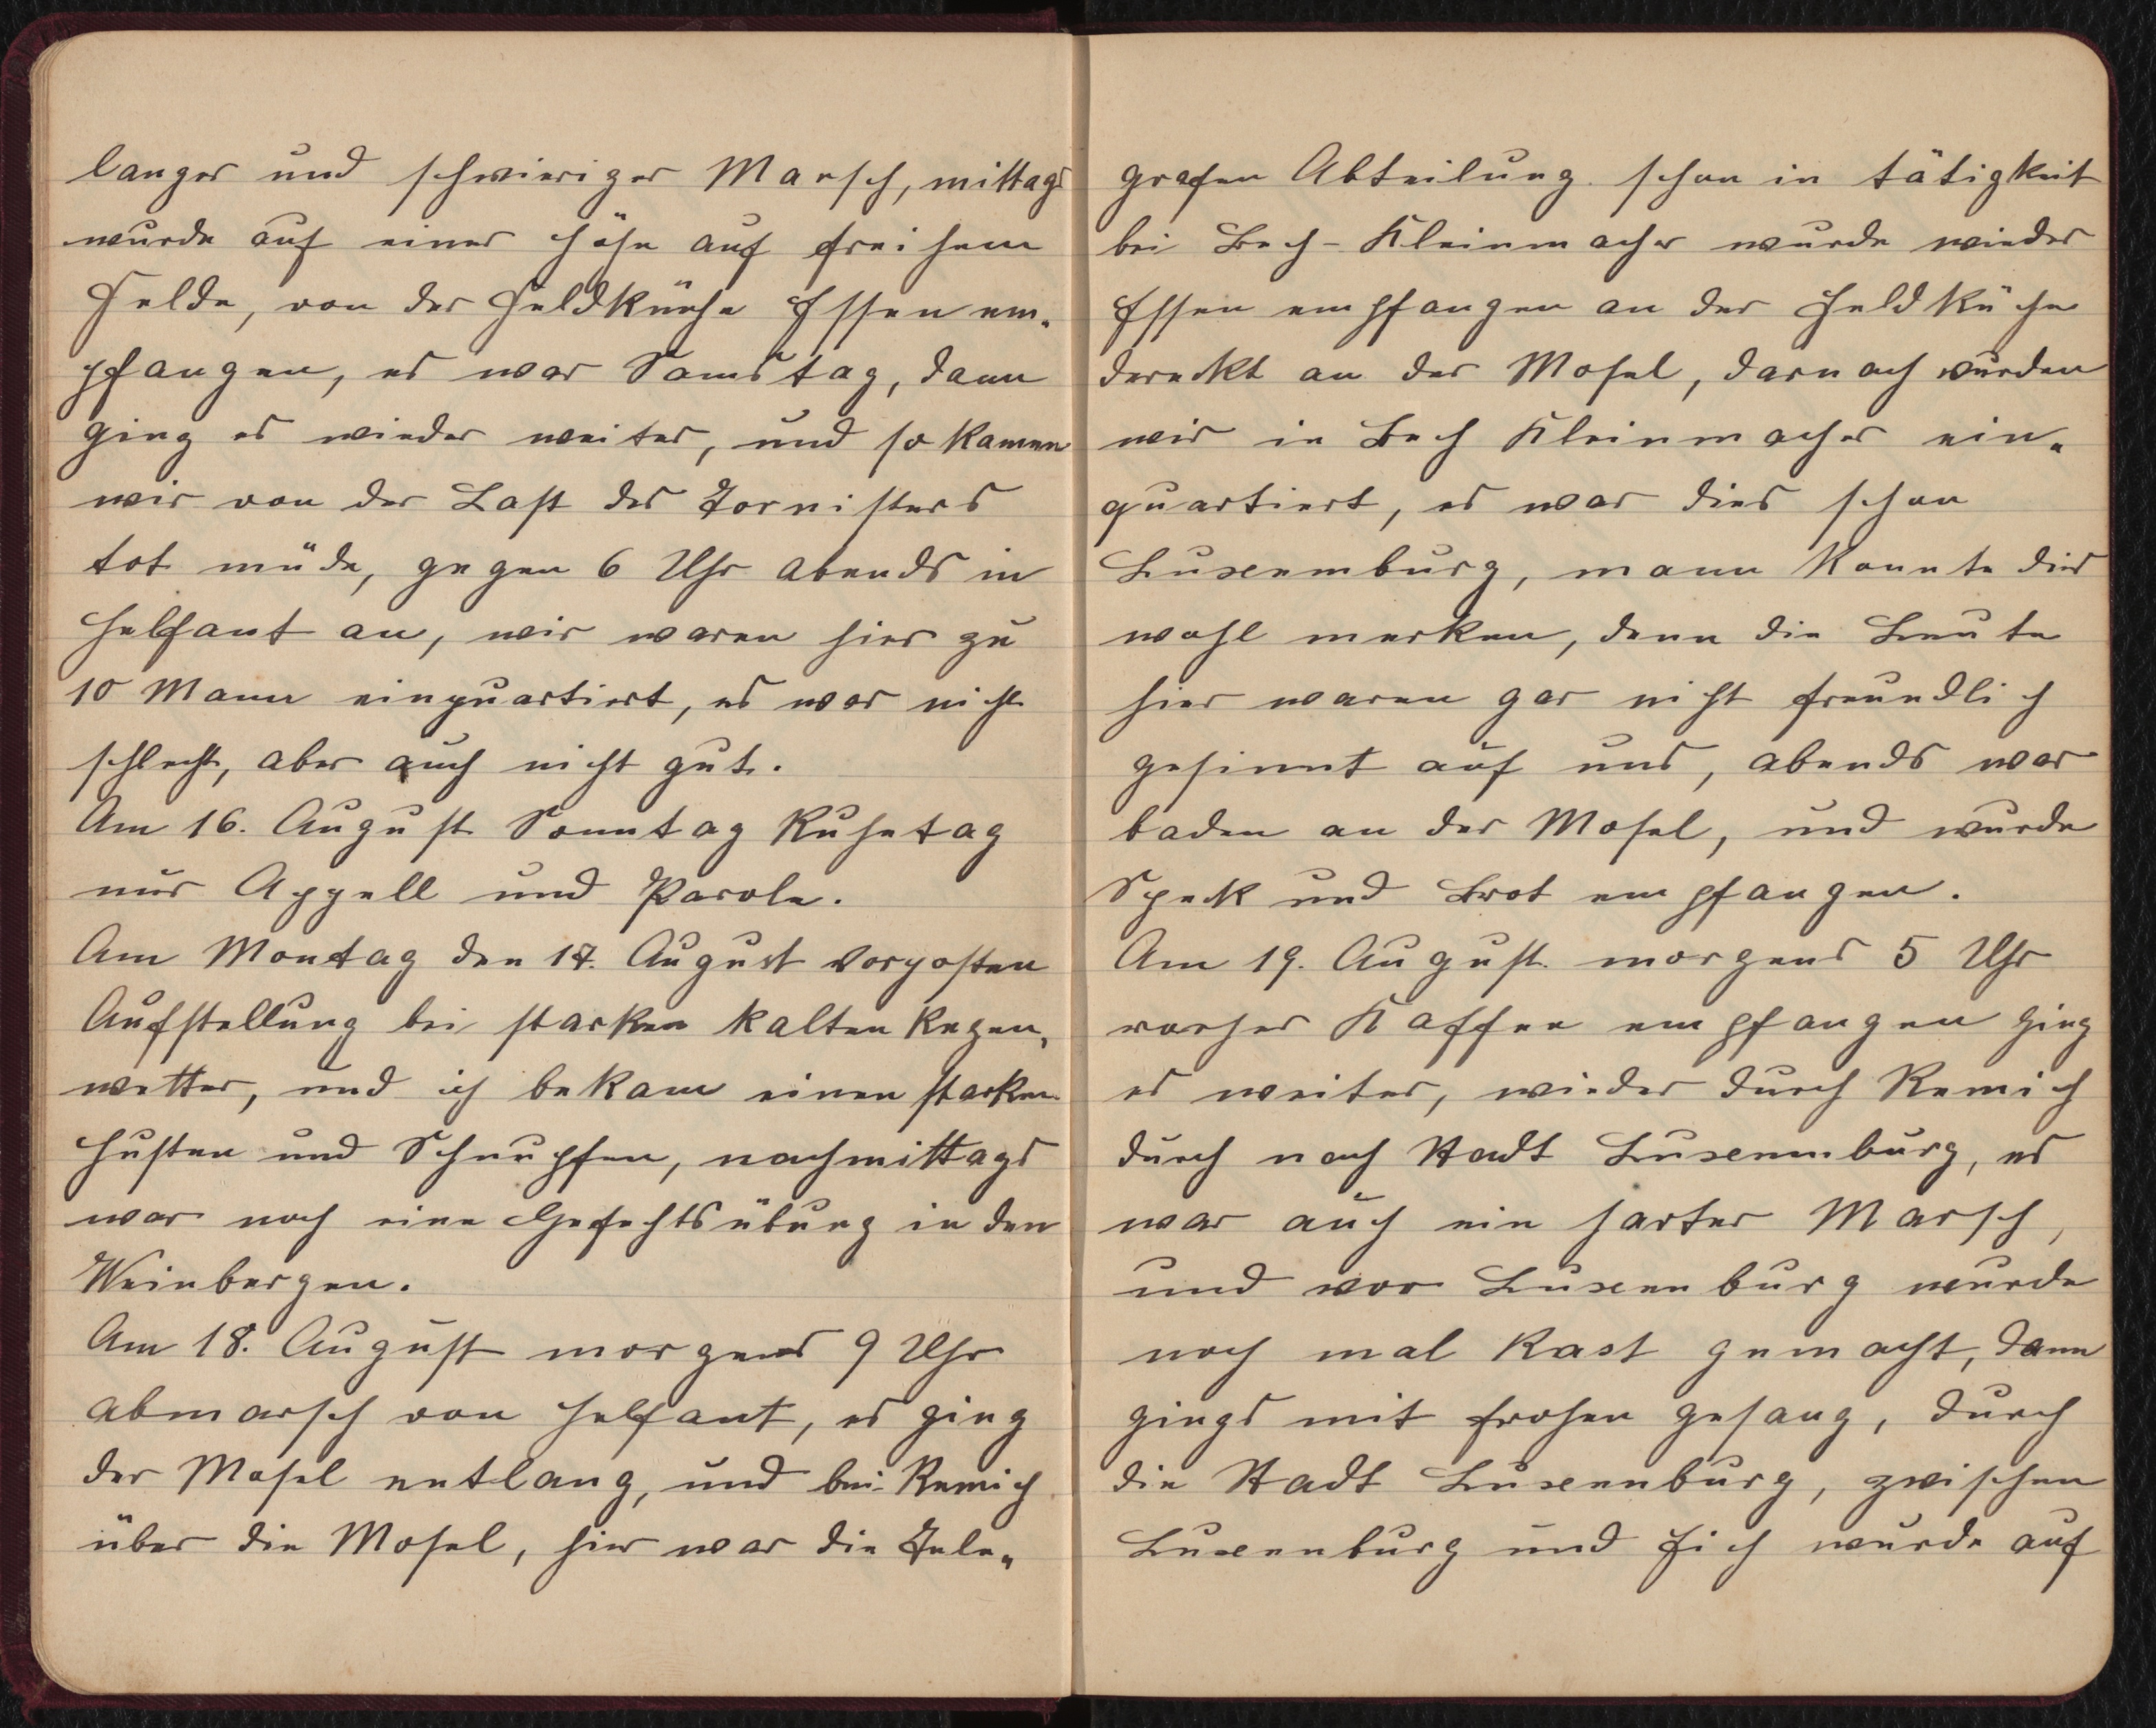 langer und schwieriger Marsch, mittags
wurde auf einer Höhe auf freihem
Felde, von der Feldküche Essen em„
pfangen, es war Samstag, dann
ging es wieder weiter, und so kamen
wir von der Last des Tornisters
tot müde, gegen 6 Uhr abends in
Helfant an, wir waren hier zu
10 Mann einquartiert, es war nicht
schlecht, aber auch nicht gut.
Am 16. August Sonntag Ruhetag
nur Appell und Parole.
Am Montag den 17. August Vorposten
Aufstellung bei starken kalten Regen„
wetter, und ich bekam einen starken
Husten und Schnupfen, nachmittags
war noch eine Gefechtsübung in den
Weinbergen.
Am 18. August morgens 9 Uhr
abmarsch von Helfant, es ging
der Mosel entlang, und bei Remich
über die Mosel, hier war die Tele„
grafen Abteilung schon in tätigkeit
bei Bech-Kleinmacher wurde wieder
Essen empfangen an der Feldküche
dereckt an der Mosel, darnach wurden
wir in Bech Kleinmacher ein„
quartiert, es war dies schon
Luxemburg, mann konnte dies
wohl merken, denn die Leute
hier waren gar nicht freundlich
gesinnt auf uns, abends war
baden an der Mosel, und wurde
Speck und Brot empfangen.
Am 19. August morgens 5 Uhr
vorher Kaffee empfangen ging
es weiter, wieder durch Remich
durch nach Stadt Luxemburg, es
war auch ein harter Marsch,
und vor Luxenburg wurde
noch mal Rast gemacht, dann
gings mit frohen gesang, durch
die Stadt Luxenburg, zwischen
Luxenburg und Eich wurde auf